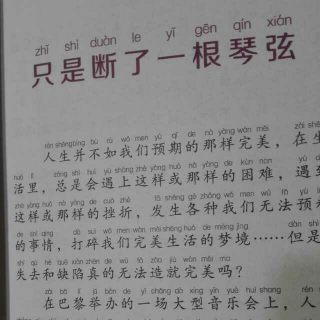 zhǐ shì duàn le yī gēn qín xián
只是断了一根琴弦
rén shēng bìng bù rú wǒ men yù qī de nà yàng wán měi zài shēng
人生并不如我们预期的那样完美，在生
huó lǐ zǒng shì huì yù shàng zhè yàng huò nà yàng de kùn nan yù
活里，总是会遇上这样或那样的困难，遇到
zhè yàng huò nà yàng de cuò zhé fā shēng gè zhǒng wǒ men wú fǎ yù
这样或那样的挫折，发生各种我们无法预
de shì qing dǎ suì wǒ men wán měi shēng huó de mèng jìng dàn shì
的事情，打碎我们完美生活的梦境……但是
shī qù hé quē xiàn zhēn de wú fǎ zào jiù wán měi ma
失去和缺陷真的无法造就完美吗？
zài bā lí jǔ bàn de yī chǎng dà xíng yīn yuè huì shàng rén
在巴黎举办的一场大型音乐会上，人